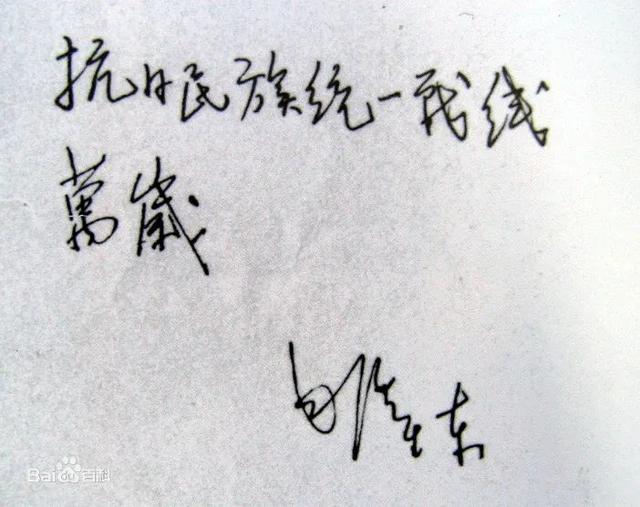 抗日民族统一战线
萬歲
Bai百科